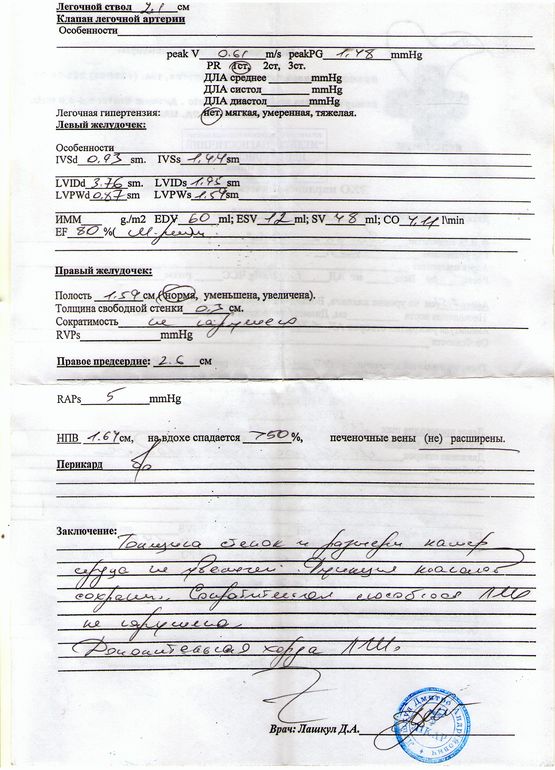 Легочной ствол 2.1 см
Клапан легочной артерии
Особенности
peak V 0.61 m/s peakPG 1,48 mmHg
PR 1ст, 2ст, 3ст.
ДЛА среднее mmHg
ДЛА систол mmHg
ДЛА диастол mmHg
Легочная гипертензия: нет, мягкая, умеренная, тяжелая.
Левый желудочек:
Особенности
IVSd 0,93 sm. IVSs 1,44 sm
LVIDd 3.76 sm LVIDs 1.95 sm
LVPWd 0,87 sm LVPWs 1.54 sm
ИММ g./m2 EDV 60 ml; ESV 12 ml; SV 48 ml; CO 4,11 l\min
EF 80 %(
Правый желудочек:
Полость 1.59 см (норма, уменьшена, увеличена).
Толщина свободной стенки 0,3 см.
Сократимость не нарушена
RVPs mmHg
Правое предсердие: 2.6 см
RAPs 5 mmHg
НПВ 1.67 см, на вдохе спадается >50 %, печеночные вены (не) расширены.
Перикард
Заключение:
Толщина стенок и размеры камер
сердца не увеличен. Функция клапанов
сохранн. Сократительная способност ЛЖ
не нарушена.
Дополнительная хорда ЛЖ.
Врач: Лашкул Д.А.